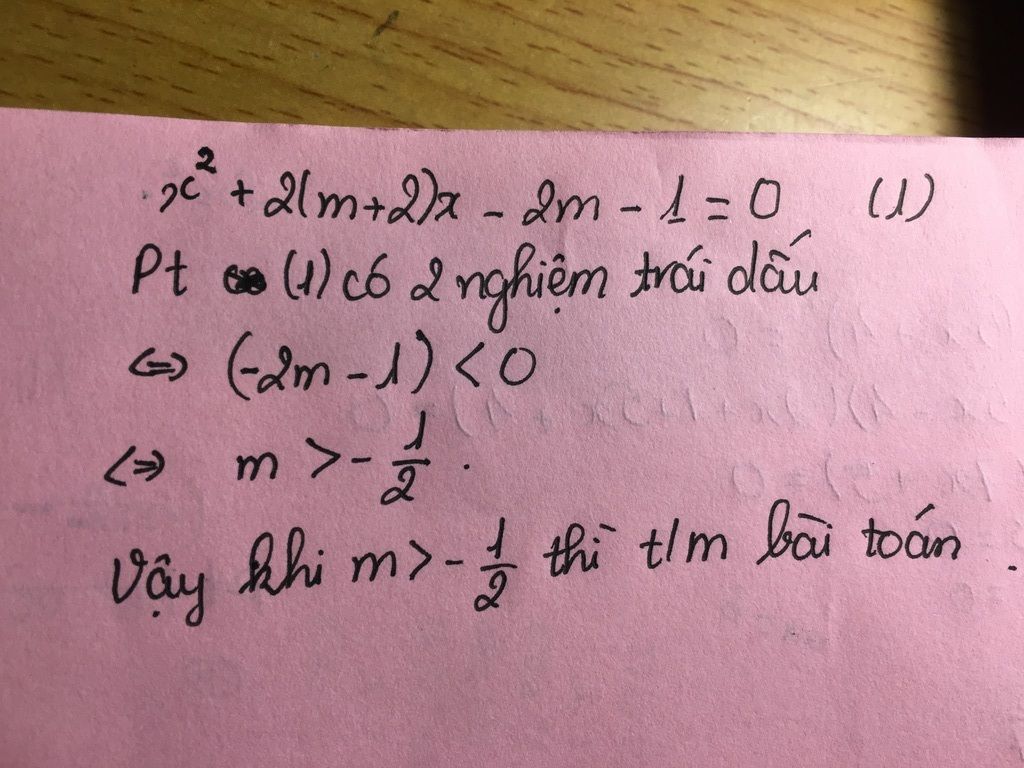 x² + 2(m+2)x - 2m - 1 = 0 (1)
Pt (1) có 2 nghiệm trái dấu
<=> (-2m - 1) < 0
<=> m > - 1/2 .
Vậy khi m > - 1/2 thì t/m bài toán .